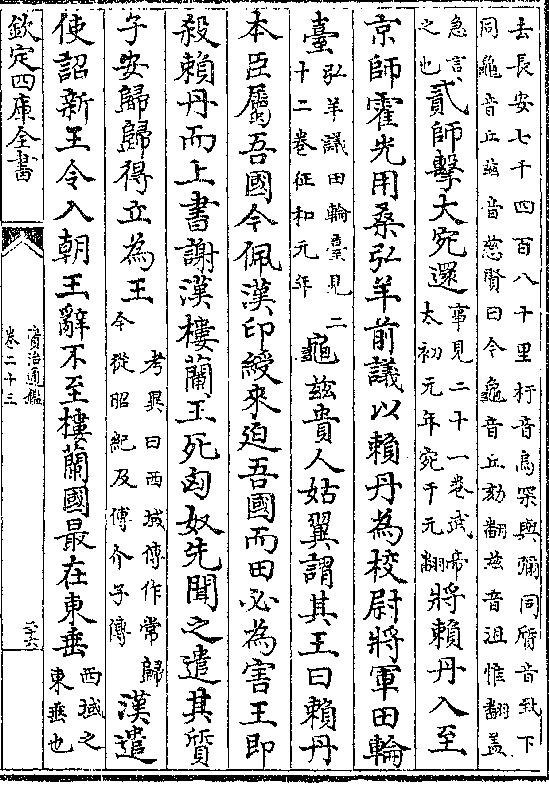 去長安七千四百八十里杅音烏罙與彌同質音致下
同龜音丘茲音慈賢曰今龜音丘勿翻茲音沮惟翻蓋
急言
之也
貳師擊大宛還
事見二十一卷武帝
太初元年宛于元翻
將賴丹入至
京師霍光用桑弘羊前議以賴丹為校尉將軍田輪
臺
弘羊議田輪臺見二
十二卷征和元年
龜茲貴人姑翼謂其王曰賴丹
本臣屬吾國今佩漢印綬來迫吾國而田必為害王即
殺賴丹而上書謝漢樓蘭王死匈奴先聞之遣其質
子安歸歸得立為王
考異曰西域傳作常歸
今從昭紀及傅介子傳
漢遣
使詔新王令入朝王辭不至樓蘭國最在東垂
西域之
東垂也
欽定四庫全書
資治通鑑
卷二十三
二十六